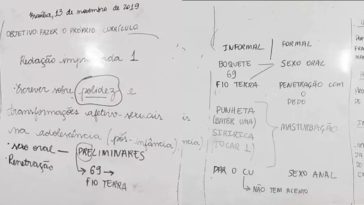 Brasília, 13 de novembro de 2019
OBJETIVO FAZER O PRÓPRIO CURRÍCULO
Redação improvisada 1
Escrever sobre polidez e
transformações afetivo-sexuais
na adolescência (pós-infância)
• são oral — PRELIMINARES
Penetração
→ 69 →
FIO TERRA
INFORMAL
FORMAL
BOQUETE
SEXO ORAL
69
FIO TERRA
PENETRAÇÃO COM
O
DEDO
PUNHETA
(BATER UMA)
SIRIRICA
(TOCAR 1)
MASTURBAÇÃO
DAR O CU
SEXO ANAL
→ NÃO TEM ACENTO